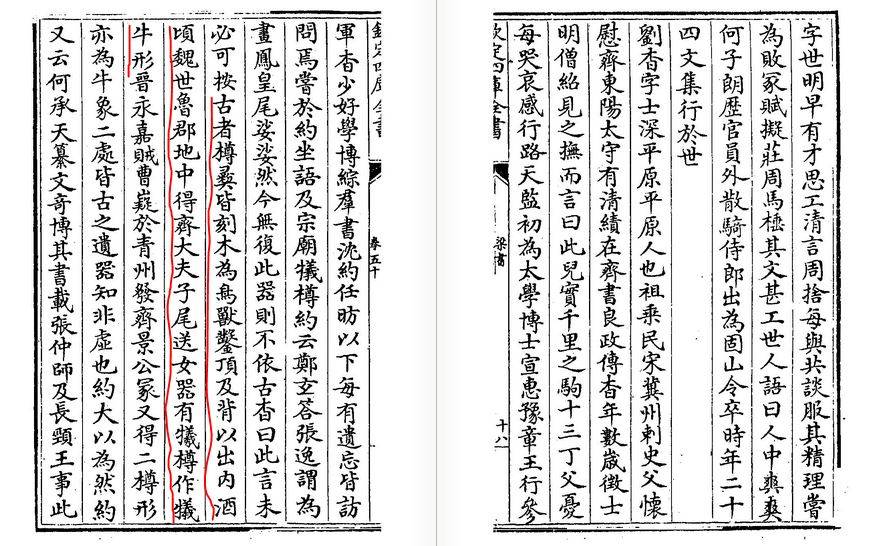 字世明早有才思工清言周捨每與共談服其精理嘗
為敗冢賦擬莊周馬棰其文甚工世人語曰人中爽爽
何子朗歷官員外散騎侍郎出為固山令卒時年二十
四文集行於世
劉杳字士深平原平原人也祖乗民宋冀州刺史父懷
慰齊東陽太守有清績在齊書良政傳杳年數嵗徵士
明僧紹見之撫而言曰此兒實千里之駒十三丁父憂
每哭哀感行路天監初為太學博士宣惠豫章王行參
欽定四庫全書
梁書
十八
欽定四庫全書
卷五十
軍杳少好學博綜羣書沈約任昉以下每有遺忘皆訪
問焉嘗於約坐語及宗廟犧樽約云鄭玄答張逸謂為
畫鳳皇尾娑娑然今無復此器則不依古杳曰此言未
必可按古者樽彞皆刻木為鳥獸鑿頂及背以出内酒
頃魏世魯郡地中得齊大夫子尾送女器有犧樽作犧
牛形晉永嘉賊曹嶷於青州發齊景公冢又得二樽形
亦為牛象二處皆古之遺器知非虛也約大以為然約
又云何承天纂文奇博其書載張仲師及長頸王事此